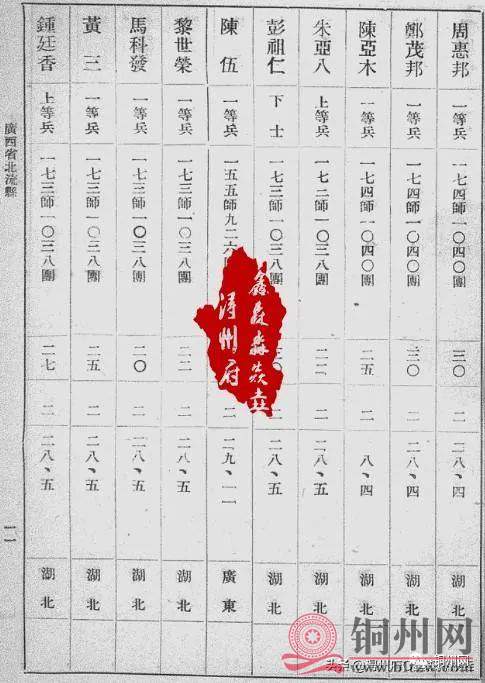 周惠邦 一等兵 一七四師一〇四〇團 三〇 二 二八、四 湖北
鄭茂邦 一等兵 一七四師一〇四〇團 三〇 二 二八、四 湖北
陳亞木 一等兵 一七四師一〇四〇團 二五 二 八、四 湖北
朱亞八 上等兵 一七二師一〇三八團 二二 二 二八、五 湖北
彭祖仁 下士 一七三師一〇三八團 〇 二 二八、五 湖北
陳伍 一等兵 一五五師九二六 二 二九、一一 廣東
黎世榮 一等兵 一七三師一〇三八團 二二 二 二八、五 湖北
馬科發 一等兵 一七三師一〇三八團 二〇 二 二八、五 湖北
黃三 一等兵 一七三師一〇三八團 二五 二 二八、五 湖北
鍾廷香 上等兵 一七三師一〇三八團 二七 二 二八、五 湖北
廣西省北流縣
一一
潯州府
铜州网